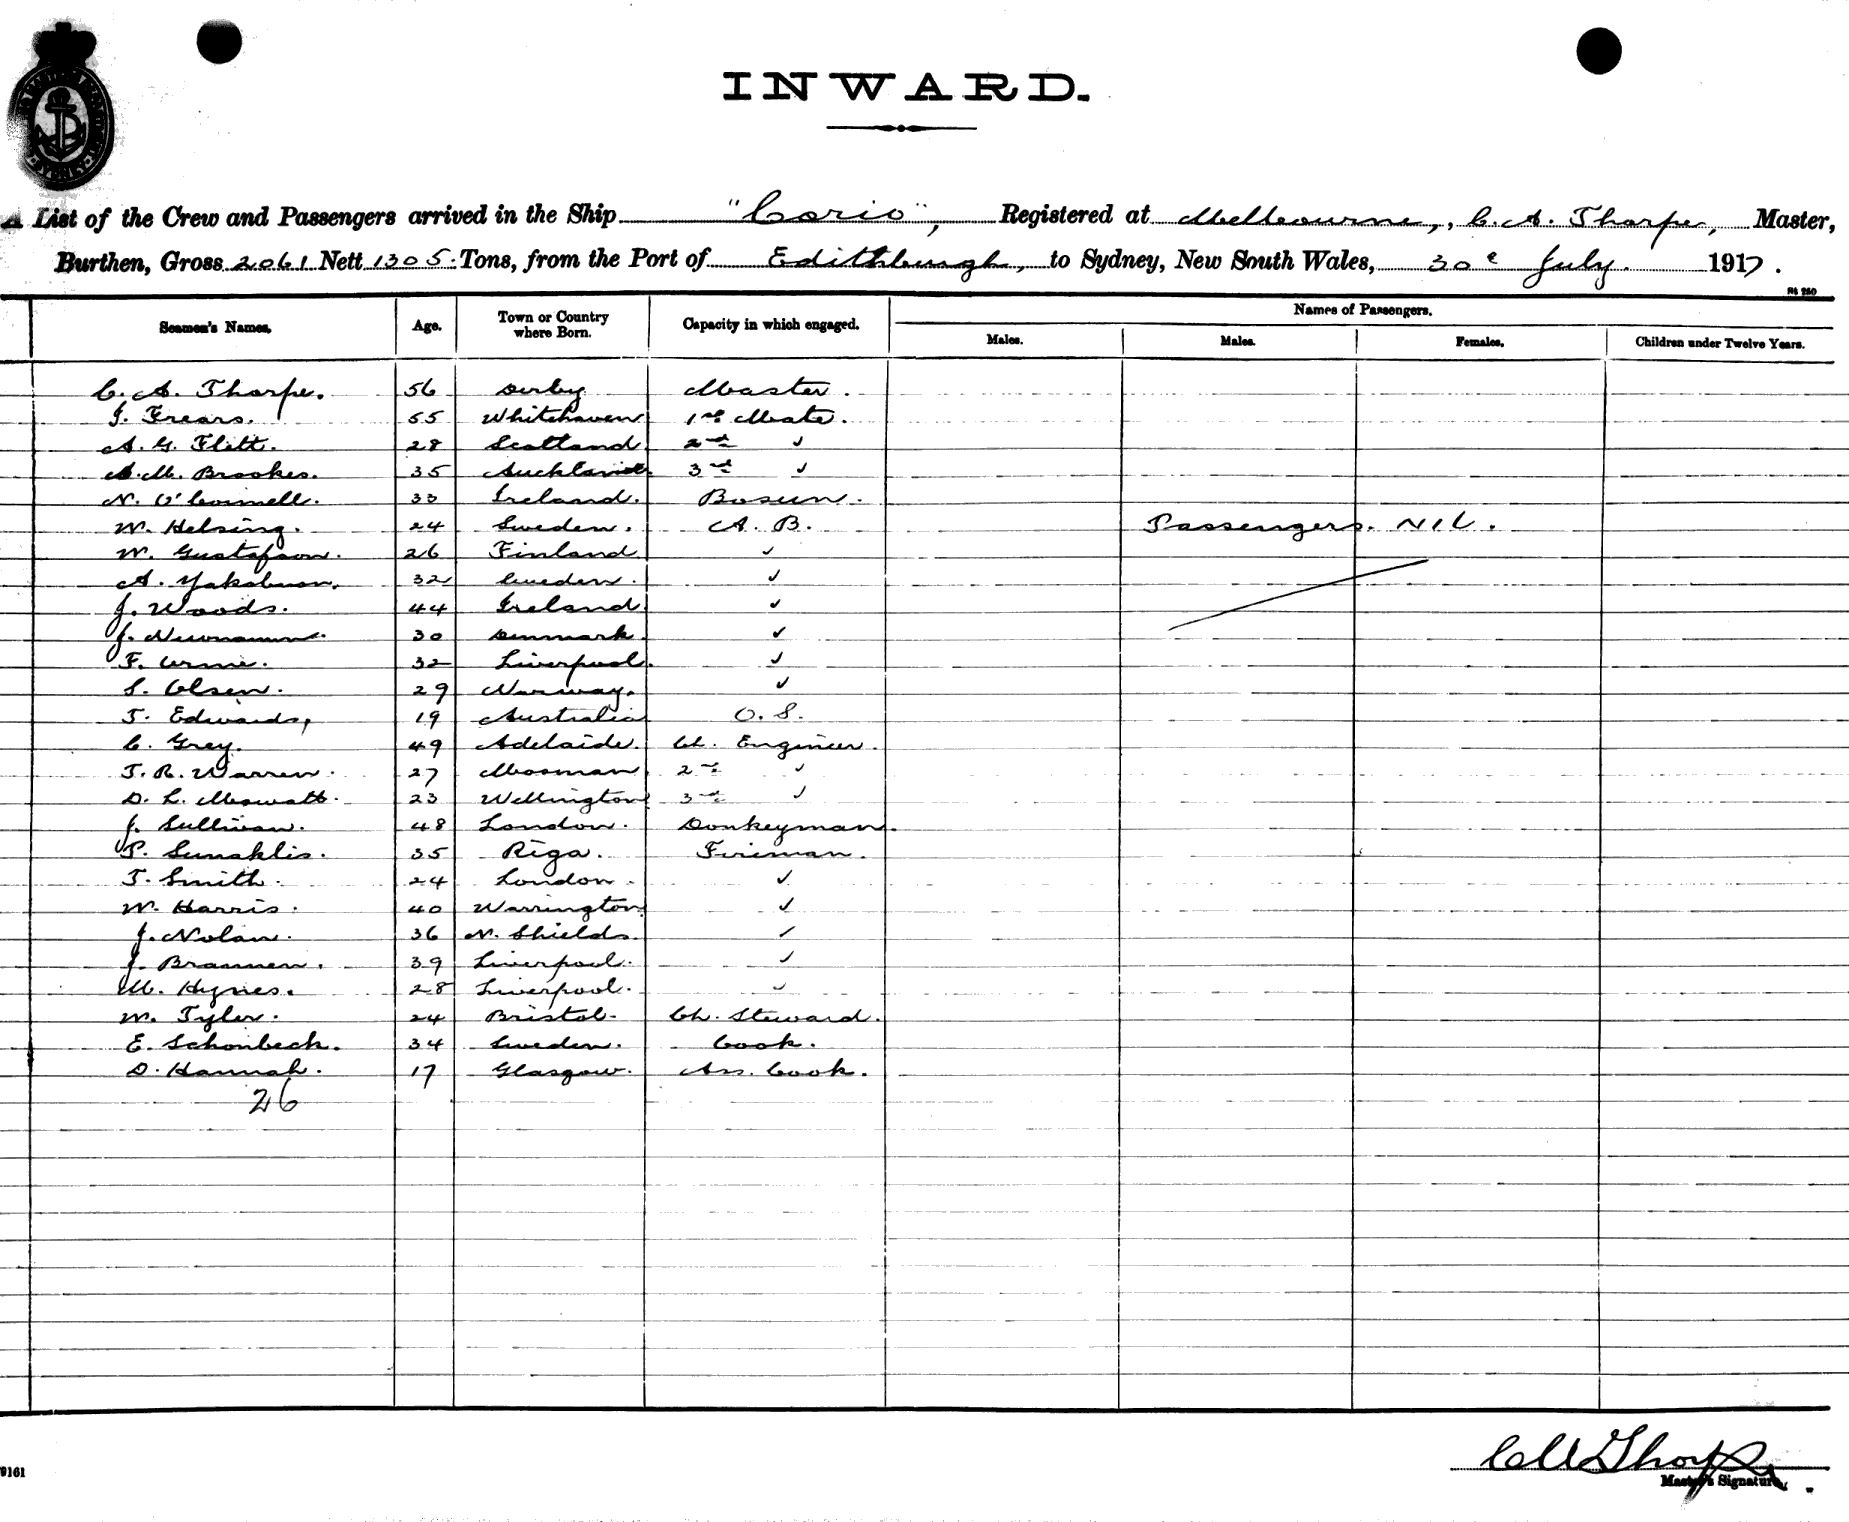 INWARD.
A List of the Crew and Passengers arrived in the Ship "Corio", Registered at Melbourne, C. A. Tharpe, Master,
Burthen, Gross 2061 Nett 1305 Tons, from the Port of Edithburgh, to Sydney, New South Wales, 30th July. 1917.
Seamen's Names. Age. Town or Country where Born. Capacity in which engaged. Names of Passengers.
Males. Males. Females. Children under Twelve Years.
C. A. Tharpe. 56 Derby Master.
J. Frears. 55 Whitehaven 1st Mate.
A. G. Flett. 28 Scotland 2nd ✓
A. M. Brookes. 35 Auckland 3rd ✓
N. O'Connell. 33 Ireland. Bosun.
W. Helsing. 24 Sweden. A. B. Passengers. NIL.
W. Gustafson. 26 Finland ✓
A. Yakobson. 32 Sweden. ✓
J. Woods. 44 Ireland ✓
J. 30 Denmark. ✓
F. 32 Liverpool. ✓
S. Olsen. 29 Norway. ✓
T. Edwards, 19 Australia O. S.
C. Grey. 49 Adelaide. Ch. Engineer.
T. R. Warren. 27 Mosman. 2nd ✓
D. L. Mowatt. 23 Wellington 3rd ✓
J. Sullivan. 48 London. Donkeyman.
P. Sunaklis. 35 Riga. Fireman.
T. Smith. 24 London. ✓
W. Harris. 40 Warrington ✓
J. Nolan. 36 N. Shields. ✓
J. Brannen. 39 Liverpool. ✓
M. Hynes. 28 Liverpool. ✓
M. Tyler. 24 Bristol. Ch. Steward.
E. Schonbeck. 34 Sweden. Cook.
D. Hannah. 17 Glasgow. Ass. Cook.
26
C A Tharpe
Master's Signature.
9161